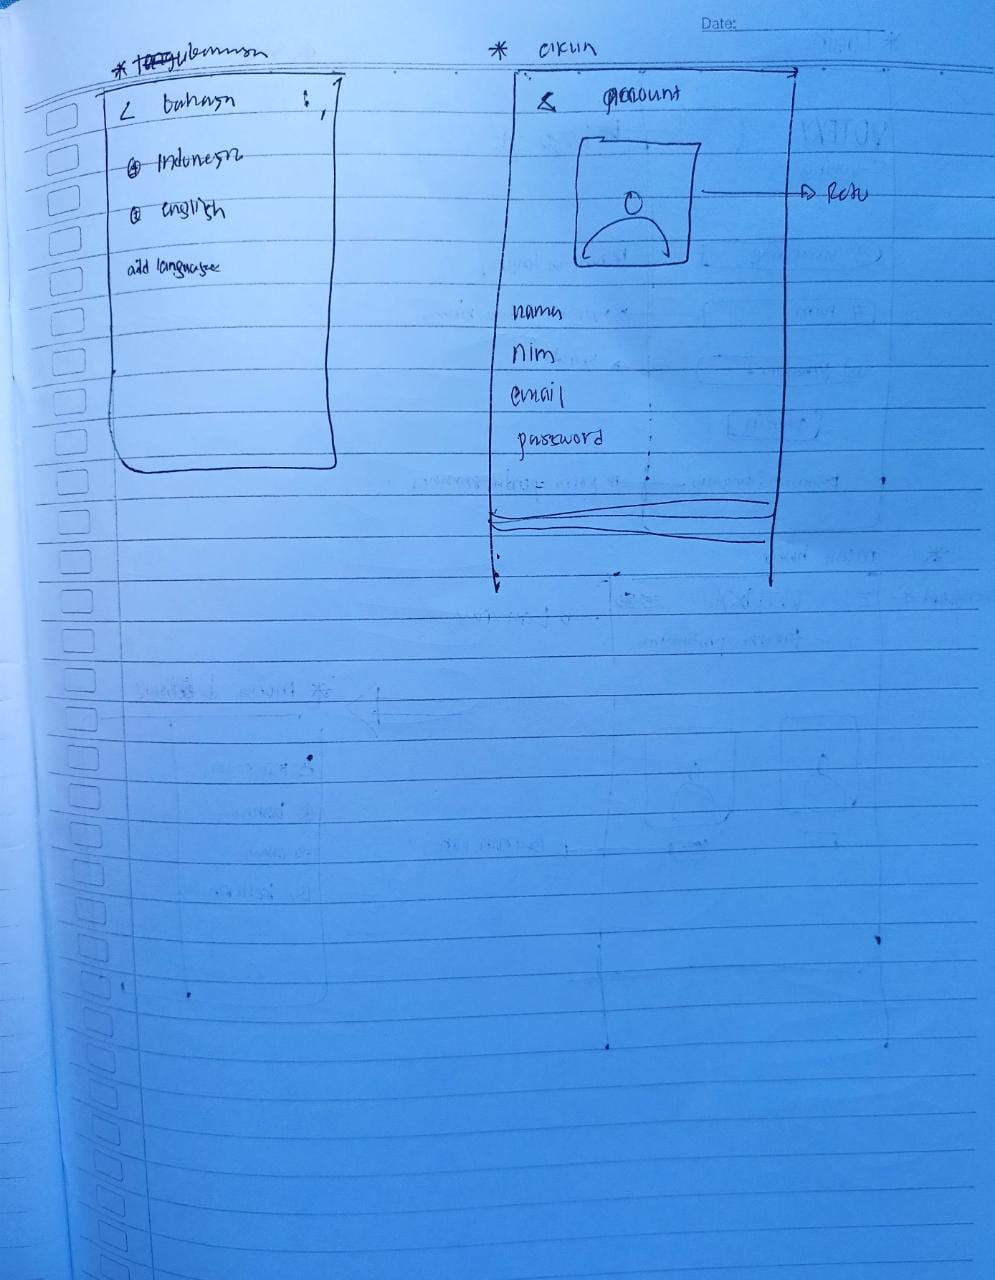 Date:
*
< bahasa :
Indonesia
english
add languages
* akun
< account
nama
nim
email
password